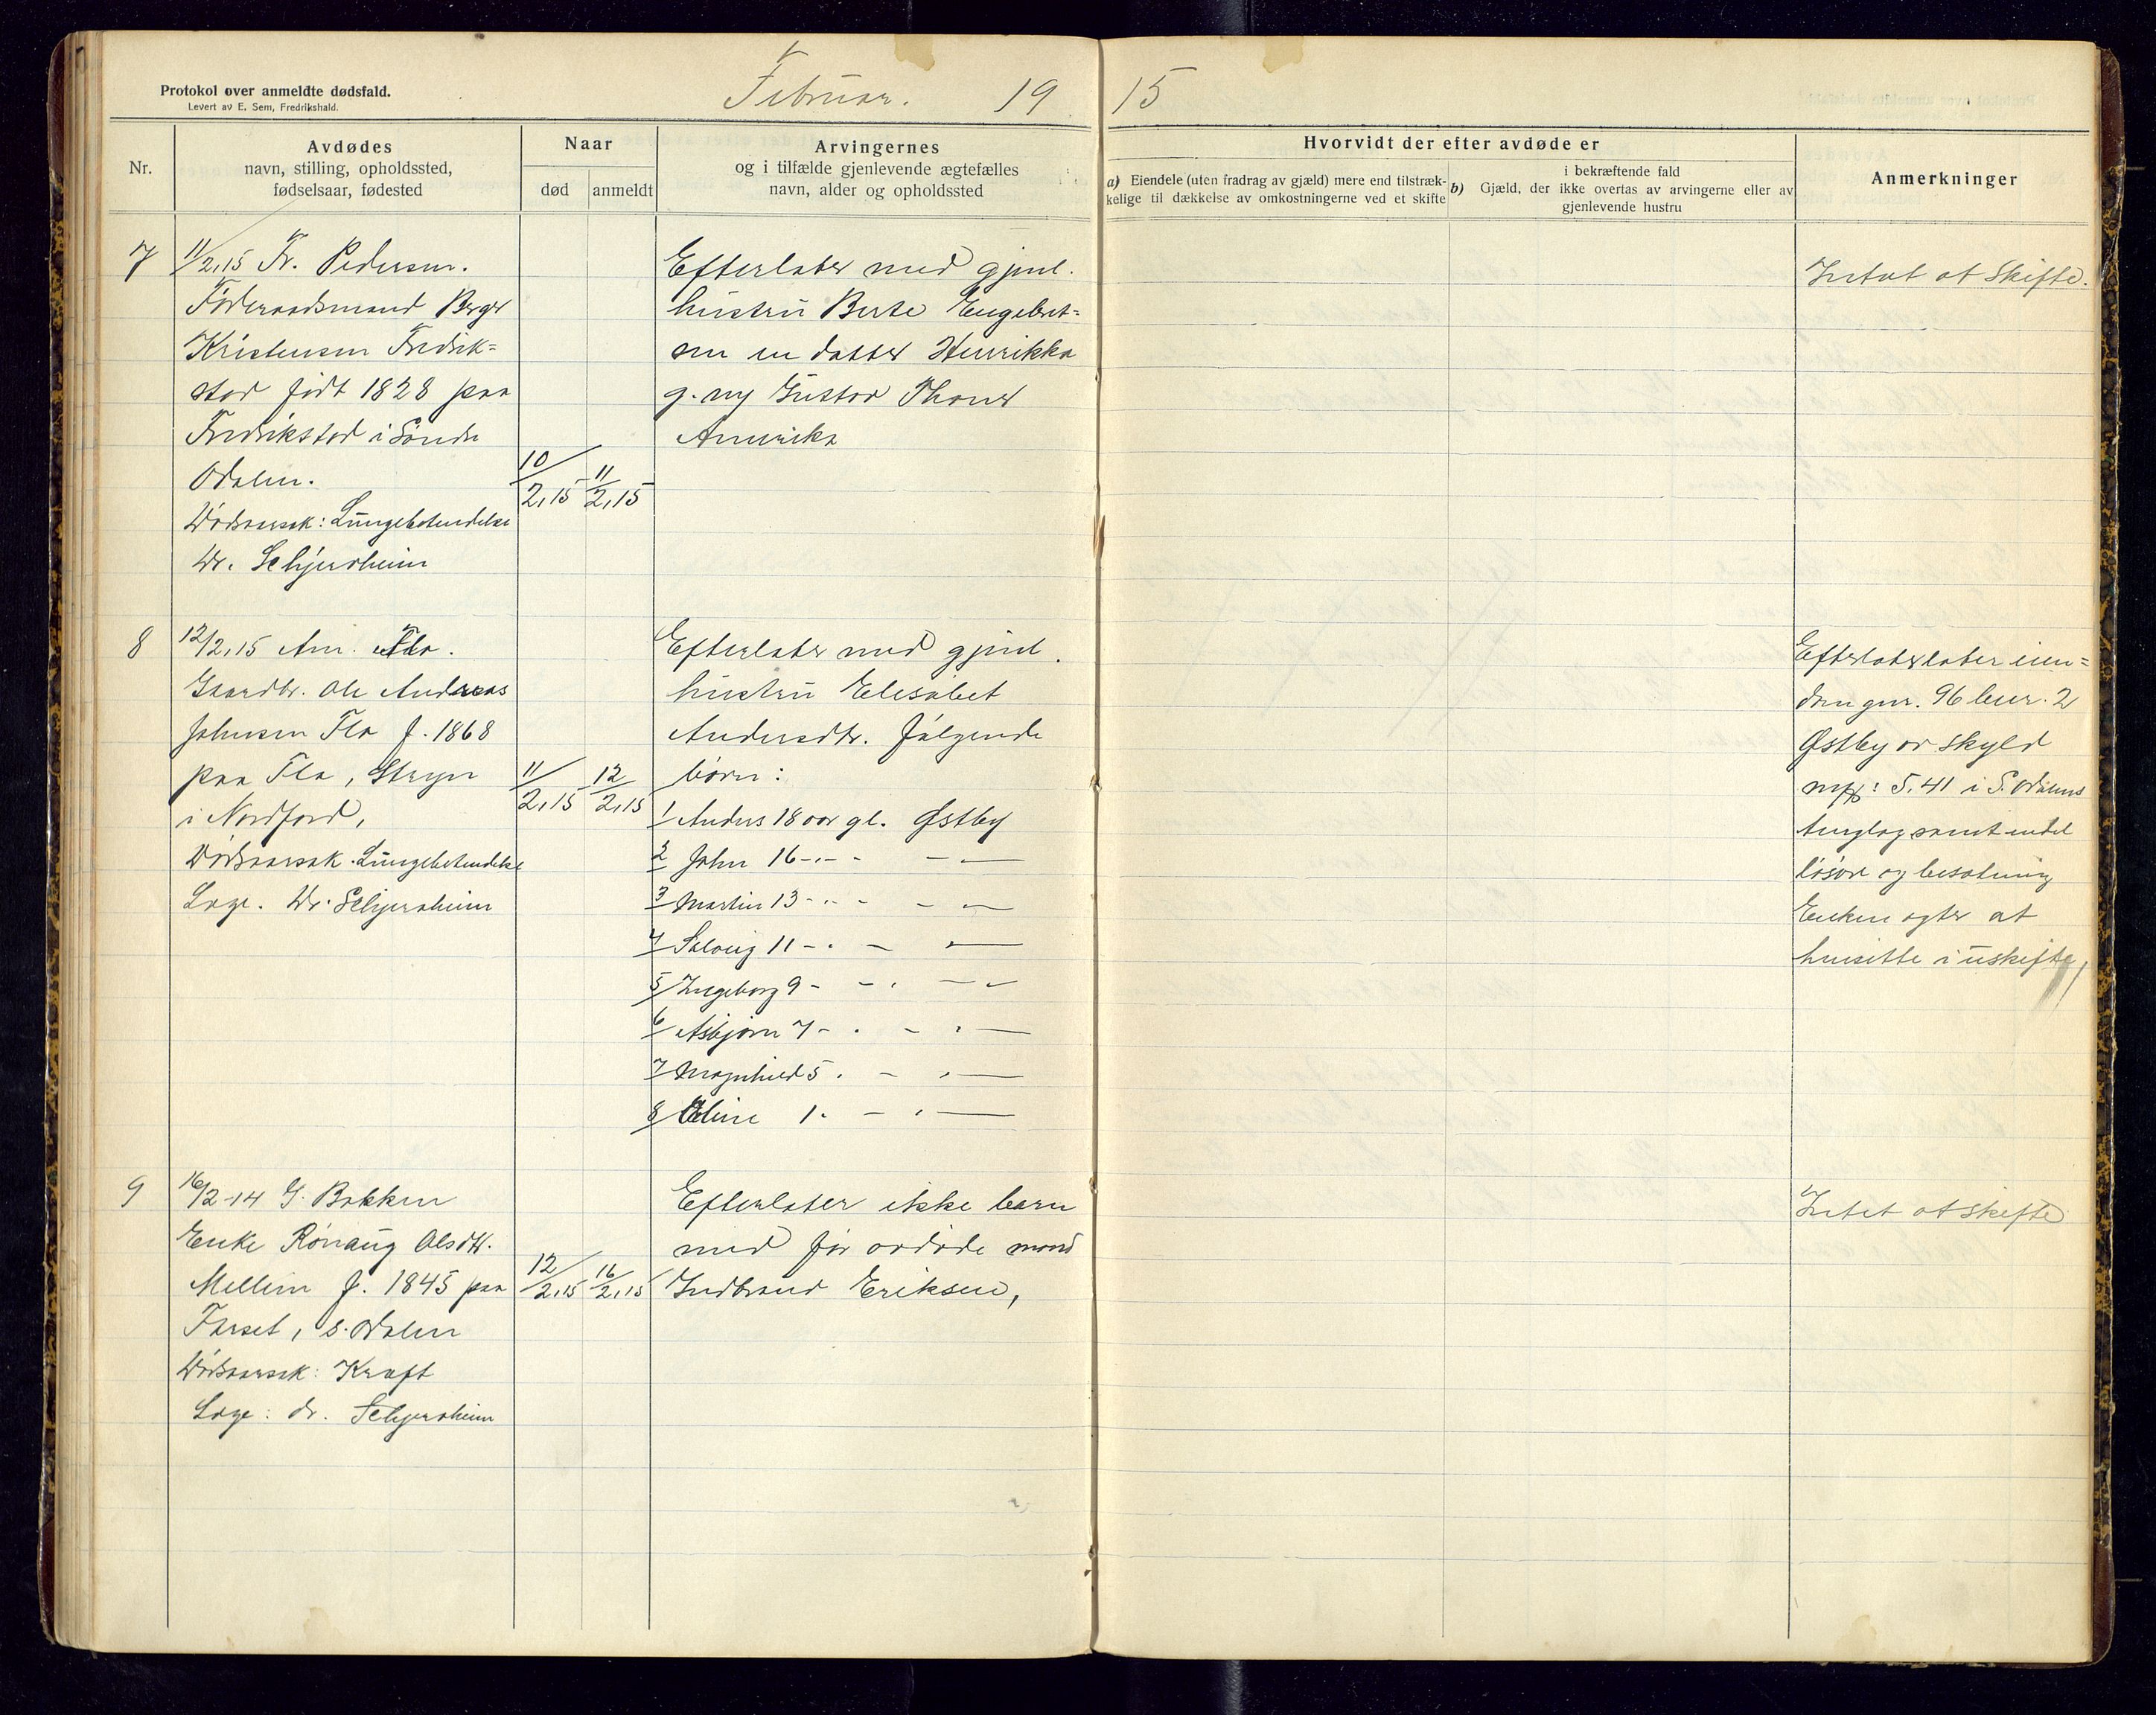 Protokol over anmeldte dødsfald.
Levert av E. Sem, Fredrikshald.
Februar. 1915
Nr.
Avdødes
navn, stilling, opholdssted,
fødselsaar, fødested
Naar
død
anmeldt
Arvingernes
og i tilfælde gjenlevende ægtefælles
navn, alder og opholdssted
Hvorvidt der efter avdøde er
a) Eiendele (uten fradrag av gjæld) mere end tilstræk-
kelige til dækkelse av omkostningerne ved et skifte
i bekræftende fald
b) Gjæld, der ikke overtas av arvingerne eller av
gjenlevende hustru
Anmerkninger
7
11/2.15 Fr. Pedersen.
Føderaadsmand Berger
Kristensen Fredrik=
stad født 1828 paa
Fredrikstad i Søndre
Odalen.
Dødsaarsak: Lungebetændelse
Dr. Schjersheim
10/2.15
11/2.15
Efterlater med gjenl.
hustru Berte Engebret=
sen en datter Henrikka
g. m/ Gustav Thoner
Amerika
Intet at skifte.
8
12/2.15 An. Flo.
Gaardbr. Ole Andreas
Johnsen Flo f. 1868
paa Flo, Stryn
i Nordfjord,
Dødsaarsak. Lungebetændelse
Læge. Dr. Schjersheim
11/2.15
12/2.15
Efterlater med gjenl.
hustru Elisabet
Andersdtr. følgende
børn:
1/ Anders 18 aar gl. Østby
2/ John 16 - " - - - " -
3/ Martin 13 - " - - - " -
4/ Solveig 11 - " - - " -
5/ Ingeborg 9 - - " - - " -
6/ Asbjørn 7 - " - " -
7/ Magnhild 5 " - " -
8/ Eline 1 " - " -
Efterlaterlater eien=
dom gnr. 96 bnr. 2
Østby av skyld
mrk: 5.41 i S. Odalens
tinglag samt endel
løsøre og besætning
Enken agter at
hensitte i uskifte,
9
16/2-14 G. Bakken
Enke Rønaug Olsdtr.
Mellem f. 1845 paa
Farset, S. Odalen
Dødsaarsak: Kræft
Læge: dr. Schjersheim
12/2.15
16/2.15
Efterlater ikke barn
med før avdøde mand
Gudbrand Eriksen,
Intet at skifte